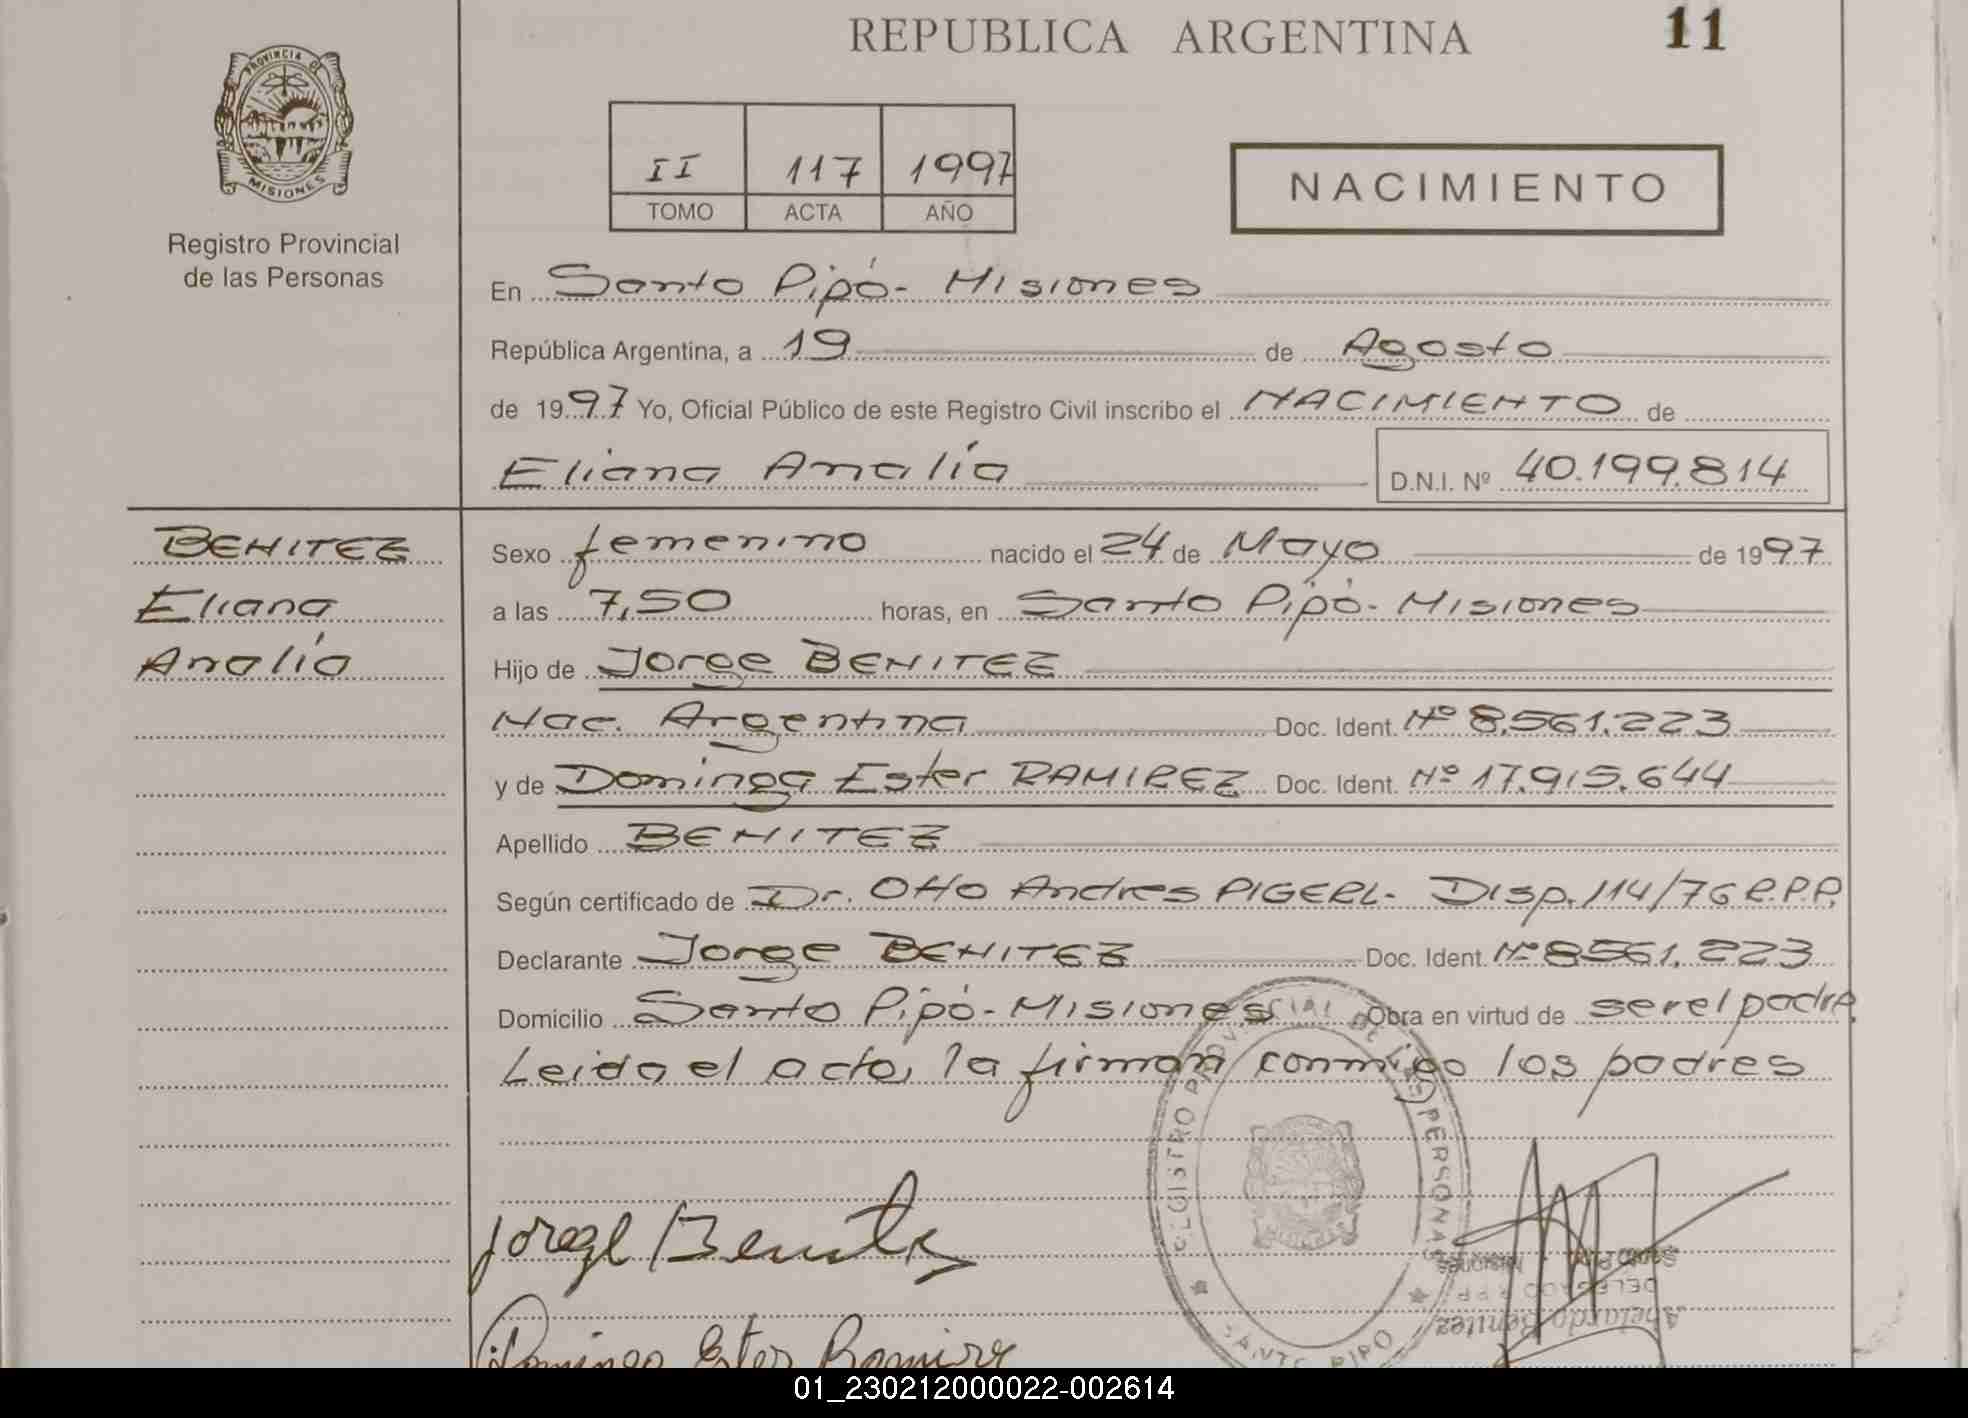 REPUBLICA ARGENTINA
11
PROVINCIA DE
MISIONES
Registro Provincial
de las Personas
II 117 1997
TOMO ACTA AÑO
NACIMIENTO
En Santo Pipó - Misiones
República Argentina, a 19 de Agosto
de 1997 Yo, Oficial Público de este Registro Civil inscribo el NACIMIENTO de
Eliana Analía D.N.I. Nº 40.199.814
BENITEZ
Eliana
Analía
Sexo femenino nacido el 24 de Mayo de 1997
a las 7,50 horas, en Santo Pipó - Misiones
Hijo de Jorge BENITEZ
Nac. Argentina Doc. Ident. Nº 8.561.223
y de Dominga Ester RAMIREZ Doc. Ident. Nº 17.915.644
Apellido BENITEZ
Según certificado de Dr. Otto Andres PIGERL - Disp. 114/76 R.P.P.
Declarante Jorge BENITEZ Doc. Ident. Nº 8561.223
Domicilio Santo Pipó - Misiones Obra en virtud de ser el padre.
Leida el acta, la firman conmigo los padres
REGISTRO PROVINCIAL DE LAS PERSONAS
SANTO PIPO
Jorge Benitez
Dominga Ester Ramirez
Abelardo Benitez
DELEGADO R.P.P.
Santo Pipó - Misiones
01_230212000022-002614